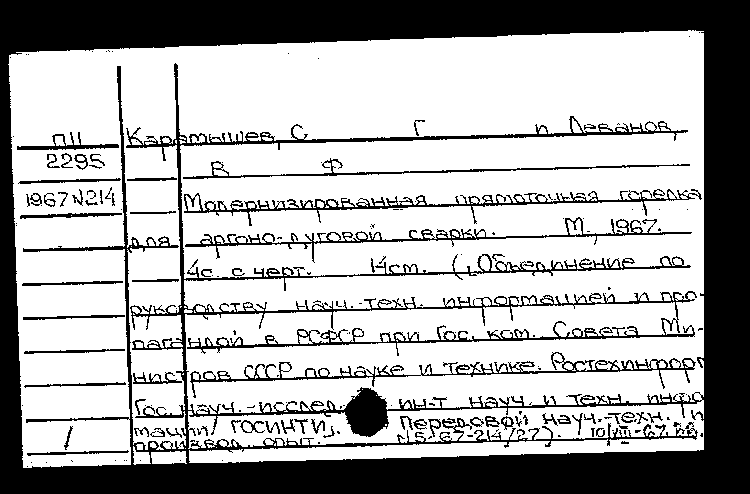 ПII Каратышев, С Г и Леванов,
2295 В Ф
1967 N214 Модернизированная прямоточная горелка
для аргоно-дуговой сварки. М., 1967.
4с. с черт. 14см. („Объединение по
руководству науч.-техн. информацией и про-
пагандой в РСФСР при Гос. ком. Совета Ми-
нистров СССР по науке и технике. Ростехинформ
Гос. науч.-исслед. ин-т науч. и техн. инфо
мации/ ГОСИНТИ„. Передовой науч.-техн. и
1 производ. опыт. N5-67-214/27). 10/VII-67.